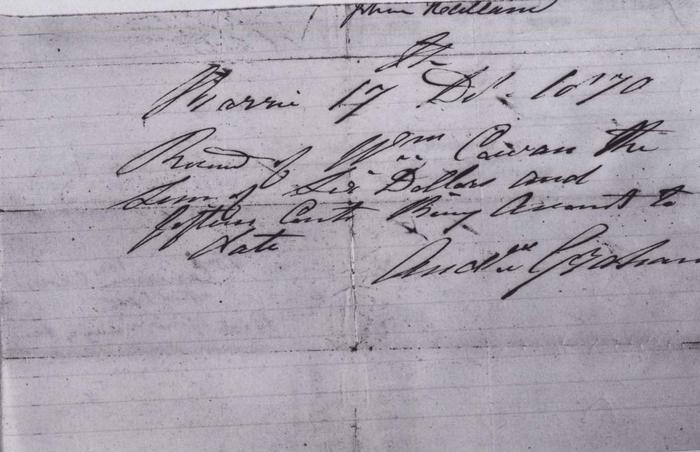 John
Barrie 17 Dec 1870
Recved of Wm Cowan the
Sum of Six Dollars and
fifteen Cents Being Amount to
date
Andrew Graham